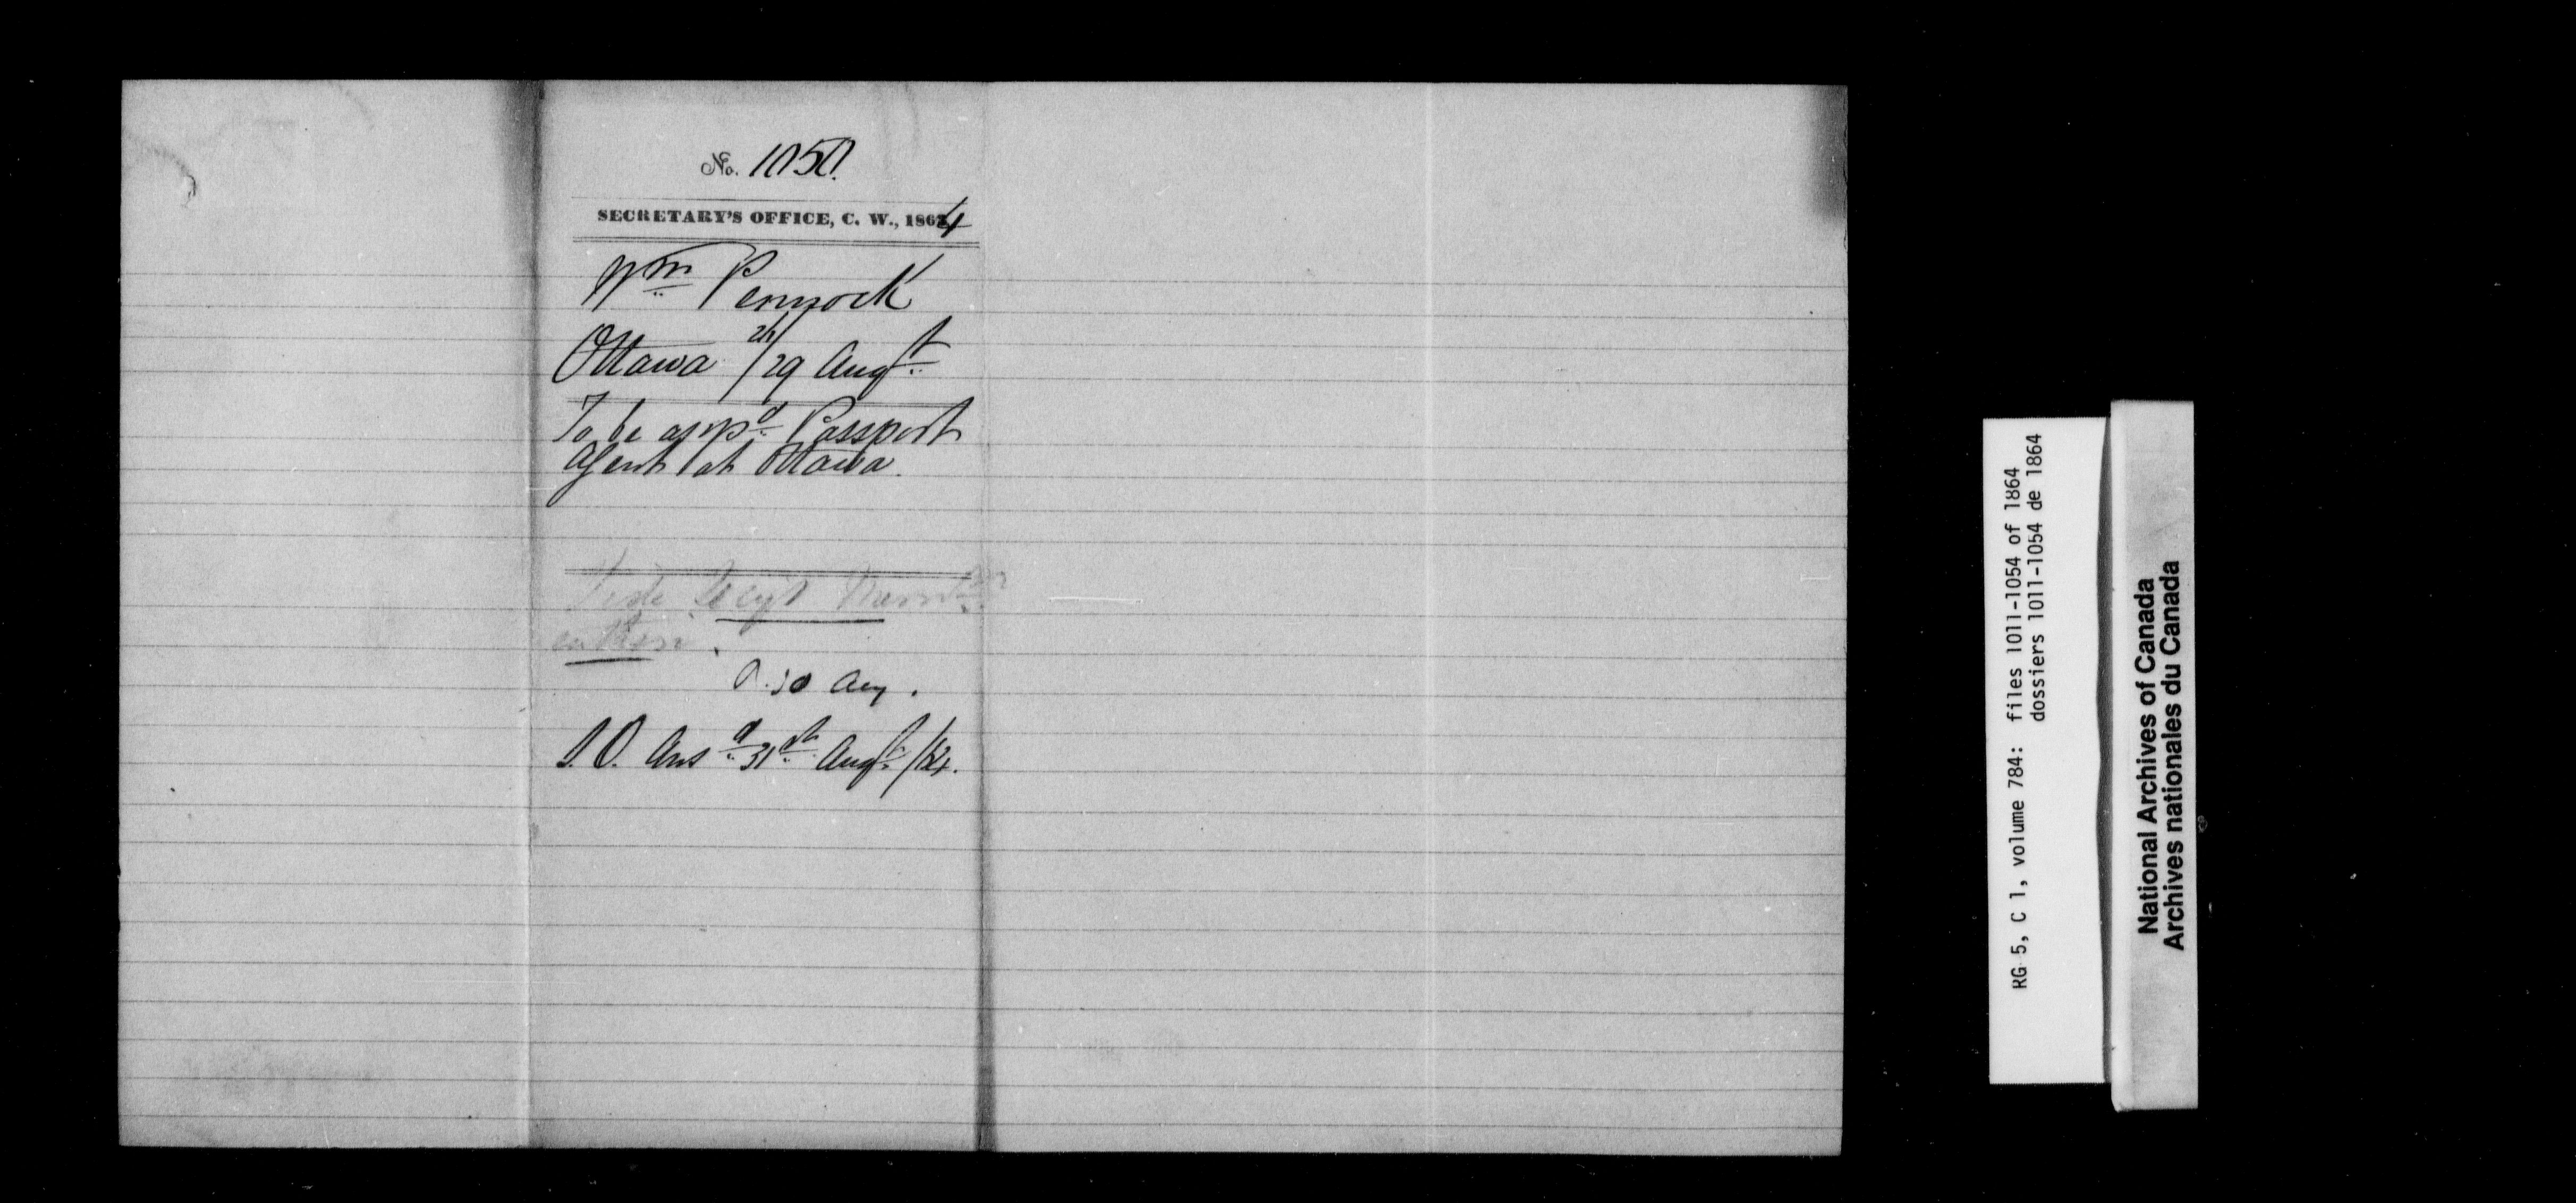 No. 1050.
SECRETARY'S OFFICE, C. W., 1864
Wm Pennock
Ottawa 29 Augt
To be appd Passport
Agent at Ottawa.
30 Aug.
Ansd 31st Augt /64.
RG 5, C 1, volume 784: files 1011-1054 of 1864
dossiers 1011-1054 de 1864
National Archives of Canada
Archives nationales du Canada